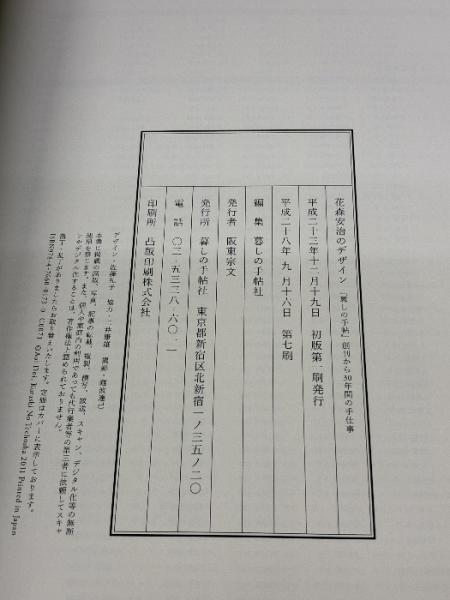 花森安治のデザイン 『暮しの手帖』創刊から30年間の手仕事
平成二十三年十二月十九日 初版第一刷発行
平成二十八年 九月十六日 第七刷
編集 暮しの手帖社
発行者 阪東宗文
発行所 暮しの手帖社 東京都新宿区北新宿一ノ三五ノ二〇
電話 〇三-五三三八-六〇一一
印刷所 凸版印刷株式会社
デザイン・佐藤礼子 協力・土井藍生
本書に掲載の図版、写真、記事の転載、複製、複写、放送、スキャン、デジタル化等の無断
使用を禁じます。また、個人や家庭内の利用であっても代行業者等の第三者に依頼してスキャ
ンやデジタル化することは、著作権法上認められておりません。
落丁・乱丁がありましたらお取り替えいたします。定価はカバーに表示してあります。
ISBN978-4-7660-0173-0 C0071 ©Aoi Doi, Kurashi No Techosha 2011 Printed in Japan